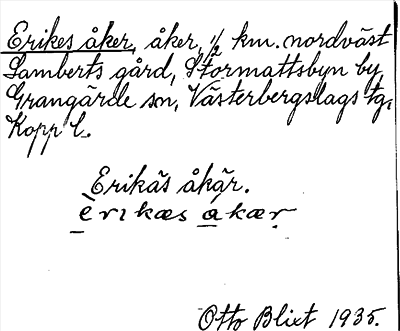 Erikes åker, åker, 1/2 km. nordväst
Lamberts gård, Stormattsbyn by,
Grangärde sn, Västerbergslags tg,
Kopp l.
Erikäs åkär.
èrıkæs åkær
Otto Blixt 1935.